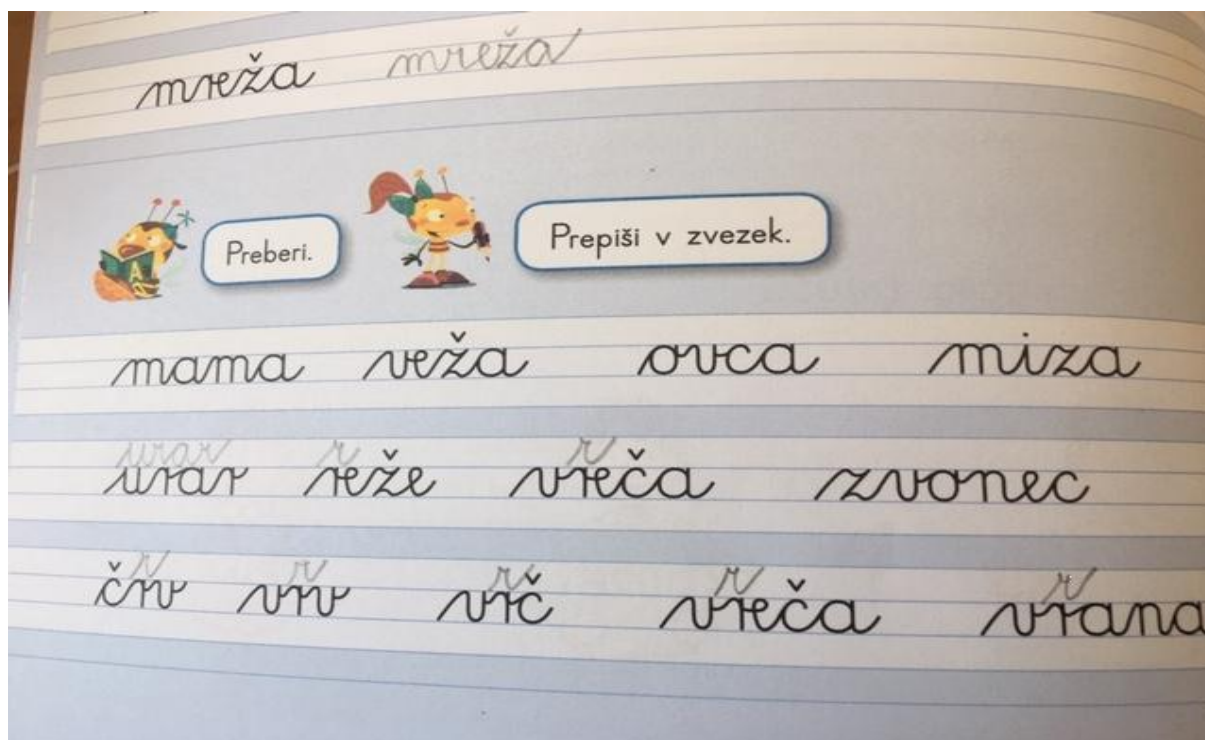 mreža mreža
Preberi. Prepiši v zvezek.
mama veža ovca miza
urar
urar reže vreča zvonec
r r
črv vrv vrč vreča vrana
r r r r r